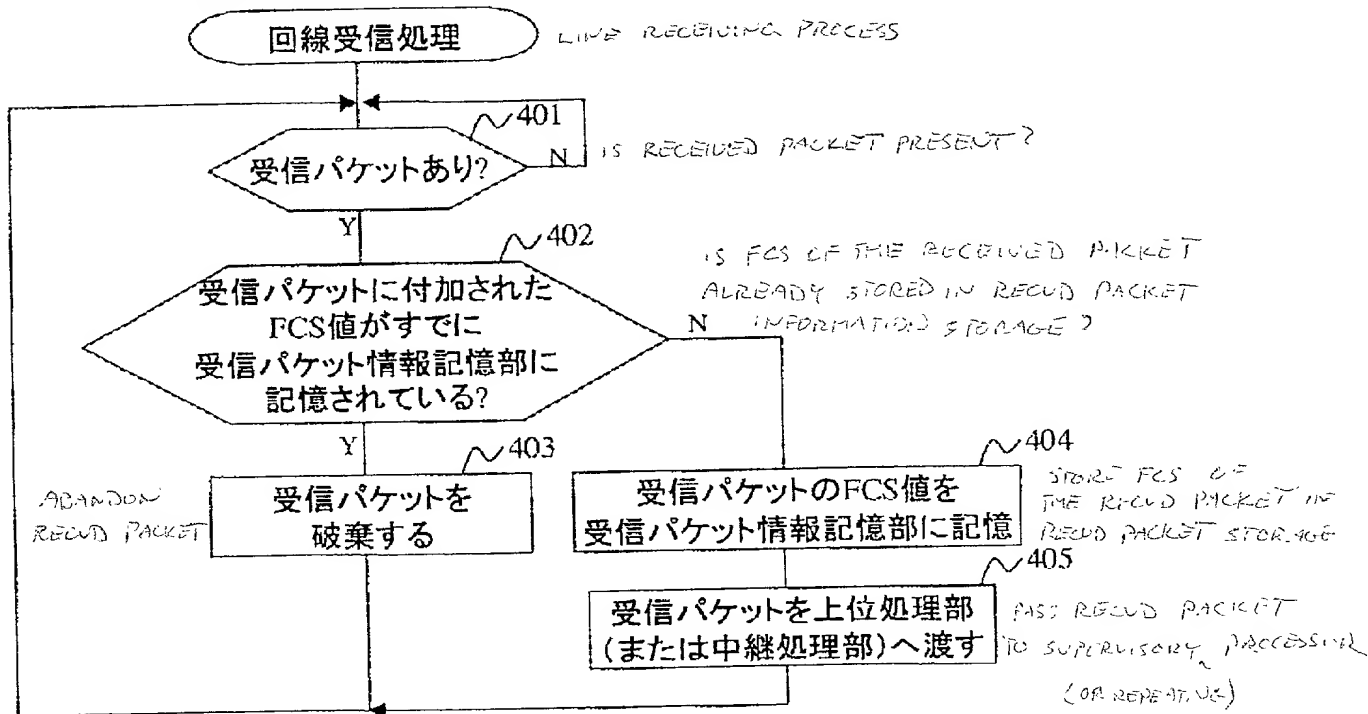 回線受信処理
LINE RECEIVING PROCESS
401
受信パケットあり?
N
IS RECEIVED PACKET PRESENT?
Y
402
受信パケットに付加された
FCS値がすでに
受信パケット情報記憶部に
記憶されている?
N
IS FCS OF THE RECEIVED PACKET
ALREADY STORED IN RECVD PACKET
INFORMATION STORAGE?
Y
403
受信パケットを
破棄する
ABANDON
RECVD PACKET
404
受信パケットのFCS値を
受信パケット情報記憶部に記憶
STORE FCS OF
THE RECVD PACKET IN
RECVD PACKET STORAGE
405
受信パケットを上位処理部
(または中継処理部)へ渡す
PASS RECVD PACKET
TO SUPERVISORY
(OR REPEATING)